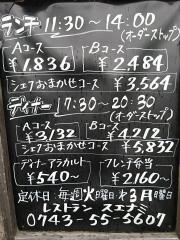 ランチ 11:30～14:00
(オーダーストップ)
Aコース Bコース
¥1,836 ¥2484
シェフおまかせコース
¥3,564
ディナー 17:30～20:30
(オーダーストップ)
Aコース Bコース
¥3,132 ¥4,212
シェフおまかせコース
¥5,832
ディナーアラカルト フレンチ弁当
¥540～ ¥2160～
定休日:毎週火曜日、第3月曜日
レストラン スエナミ
0743-55-5607